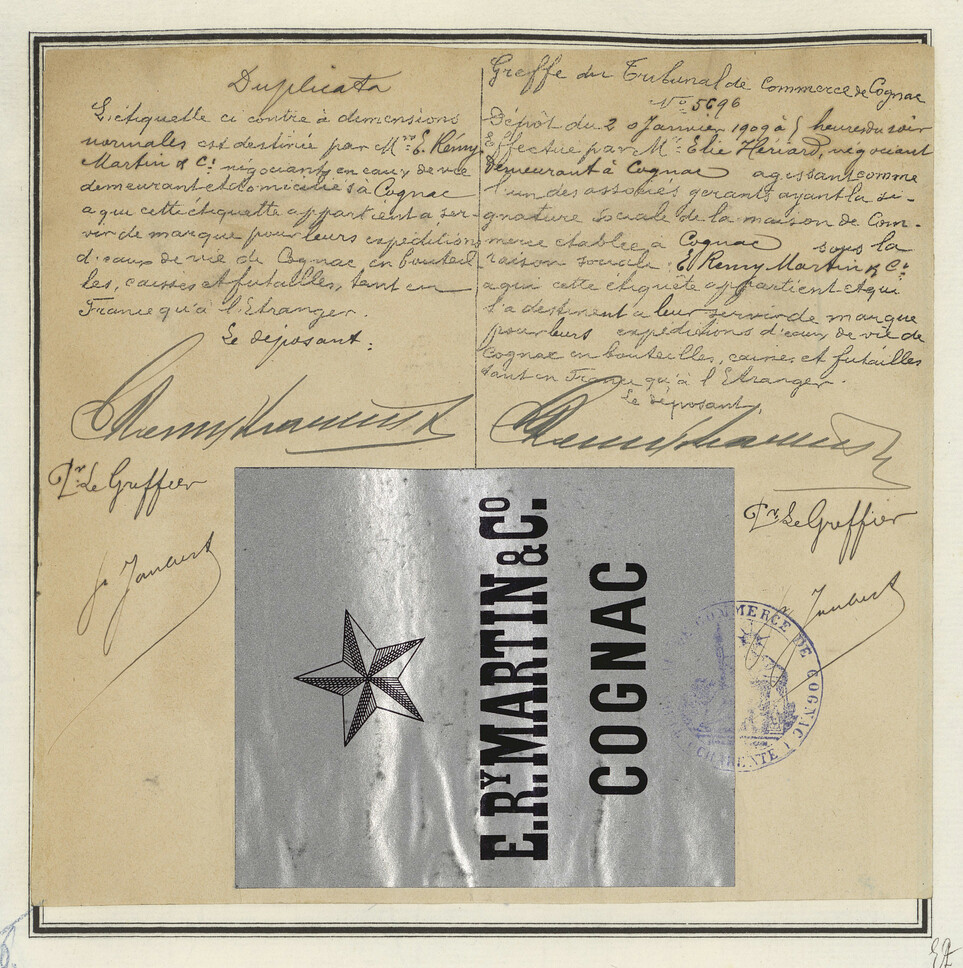 Duplicata
L'étiquette ci contre à dimensions
normales est destinée par Mrs E. Rémy
Martin & Cie négociants en eaux de vie
demeurant et domiciliés à Cognac
a qui cette étiquette appartient a ser-
vir de marque pour leurs expéditions
d'eaux de vie de Cognac en bouteil
les, caisses et futailles, tant en
France qu'à l'Etranger.
Le déposant:
Pr Le Greffier
Joubert
Greffe du Tribunal de Commerce de Cognac
No 5696
Dépôt du 20 Janvier 1909 à 5 heures du soir
Effectué par Mr Elie Hériard, négociant
demeurant à Cognac agissant comme
l'un des associés gerants ayant la si-
gnature sociale de la maison de Com-
merce etablie à Cognac sous la
raison sociale E. Remy Martin & Cie
a qui cette étiquête appartient et qui
la destinent a leur servir de marque
pour leurs expeditions d'eaux de vie de
Cognac en bouteilles, caisses et futailles
tant en France qu'à l'Etranger.
Le déposant,
Pr Le Greffier
Joubert
E. RY. MARTIN & CO.
COGNAC
DE COMMERCE DE COGNAC
CHARENTE